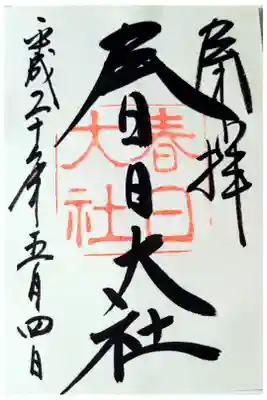 奉拝
春日大社
春日
大社
平成二十年五月四日